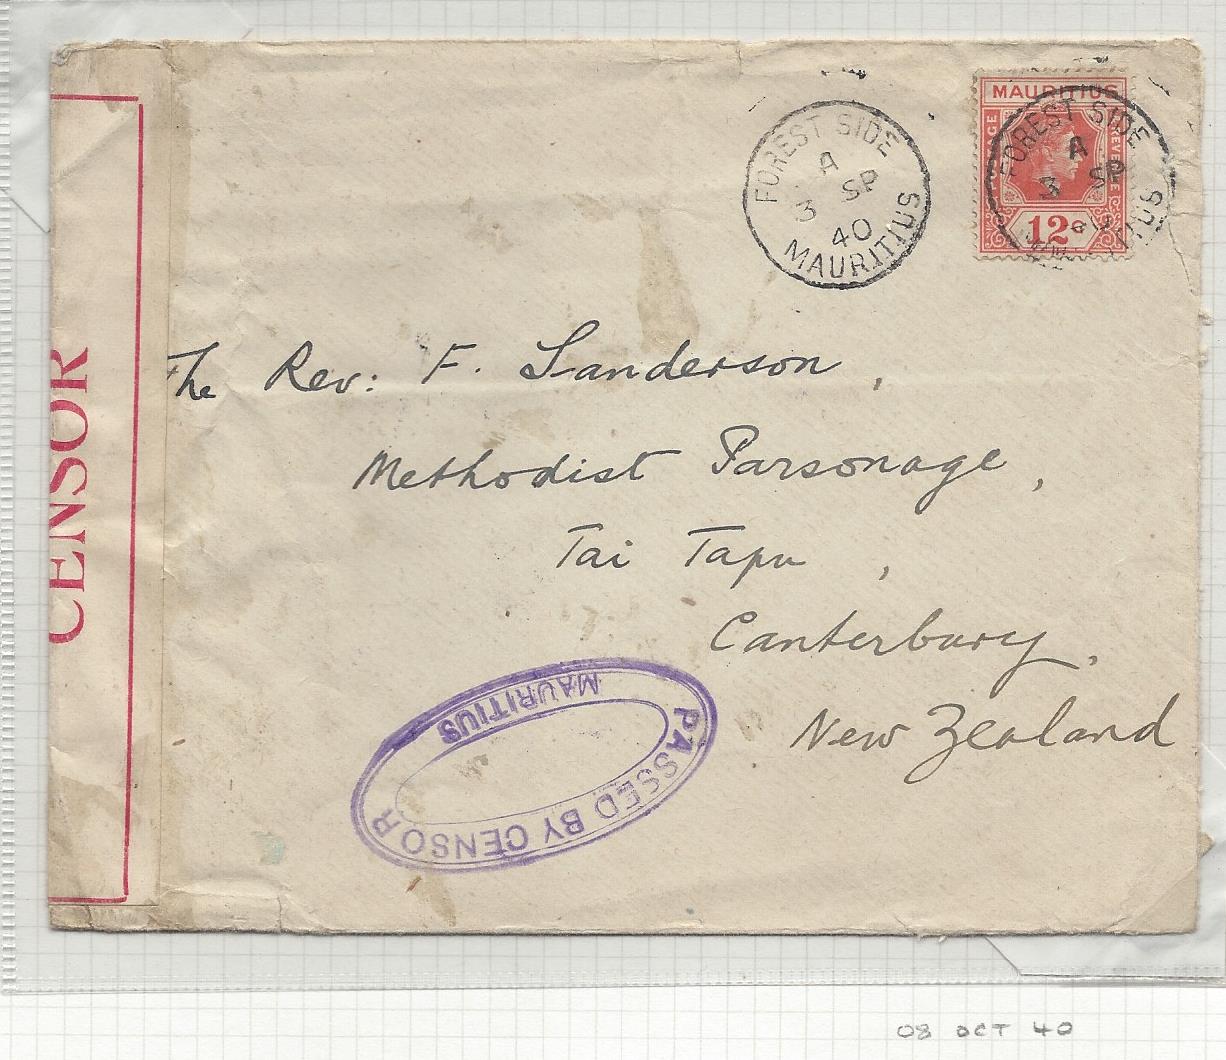 CENSOR
FOREST SIDE
A
3 SP
40
MAURITIUS
MAURITIUS
REVENUE
12c
FOREST SIDE
A
3 SP
The Rev: F. Sanderson,
Methodist Parsonage,
Tai Tapu,
Canterbury,
New Zealand
PASSED BY CENSOR
MAURITIUS
08 OCT 40